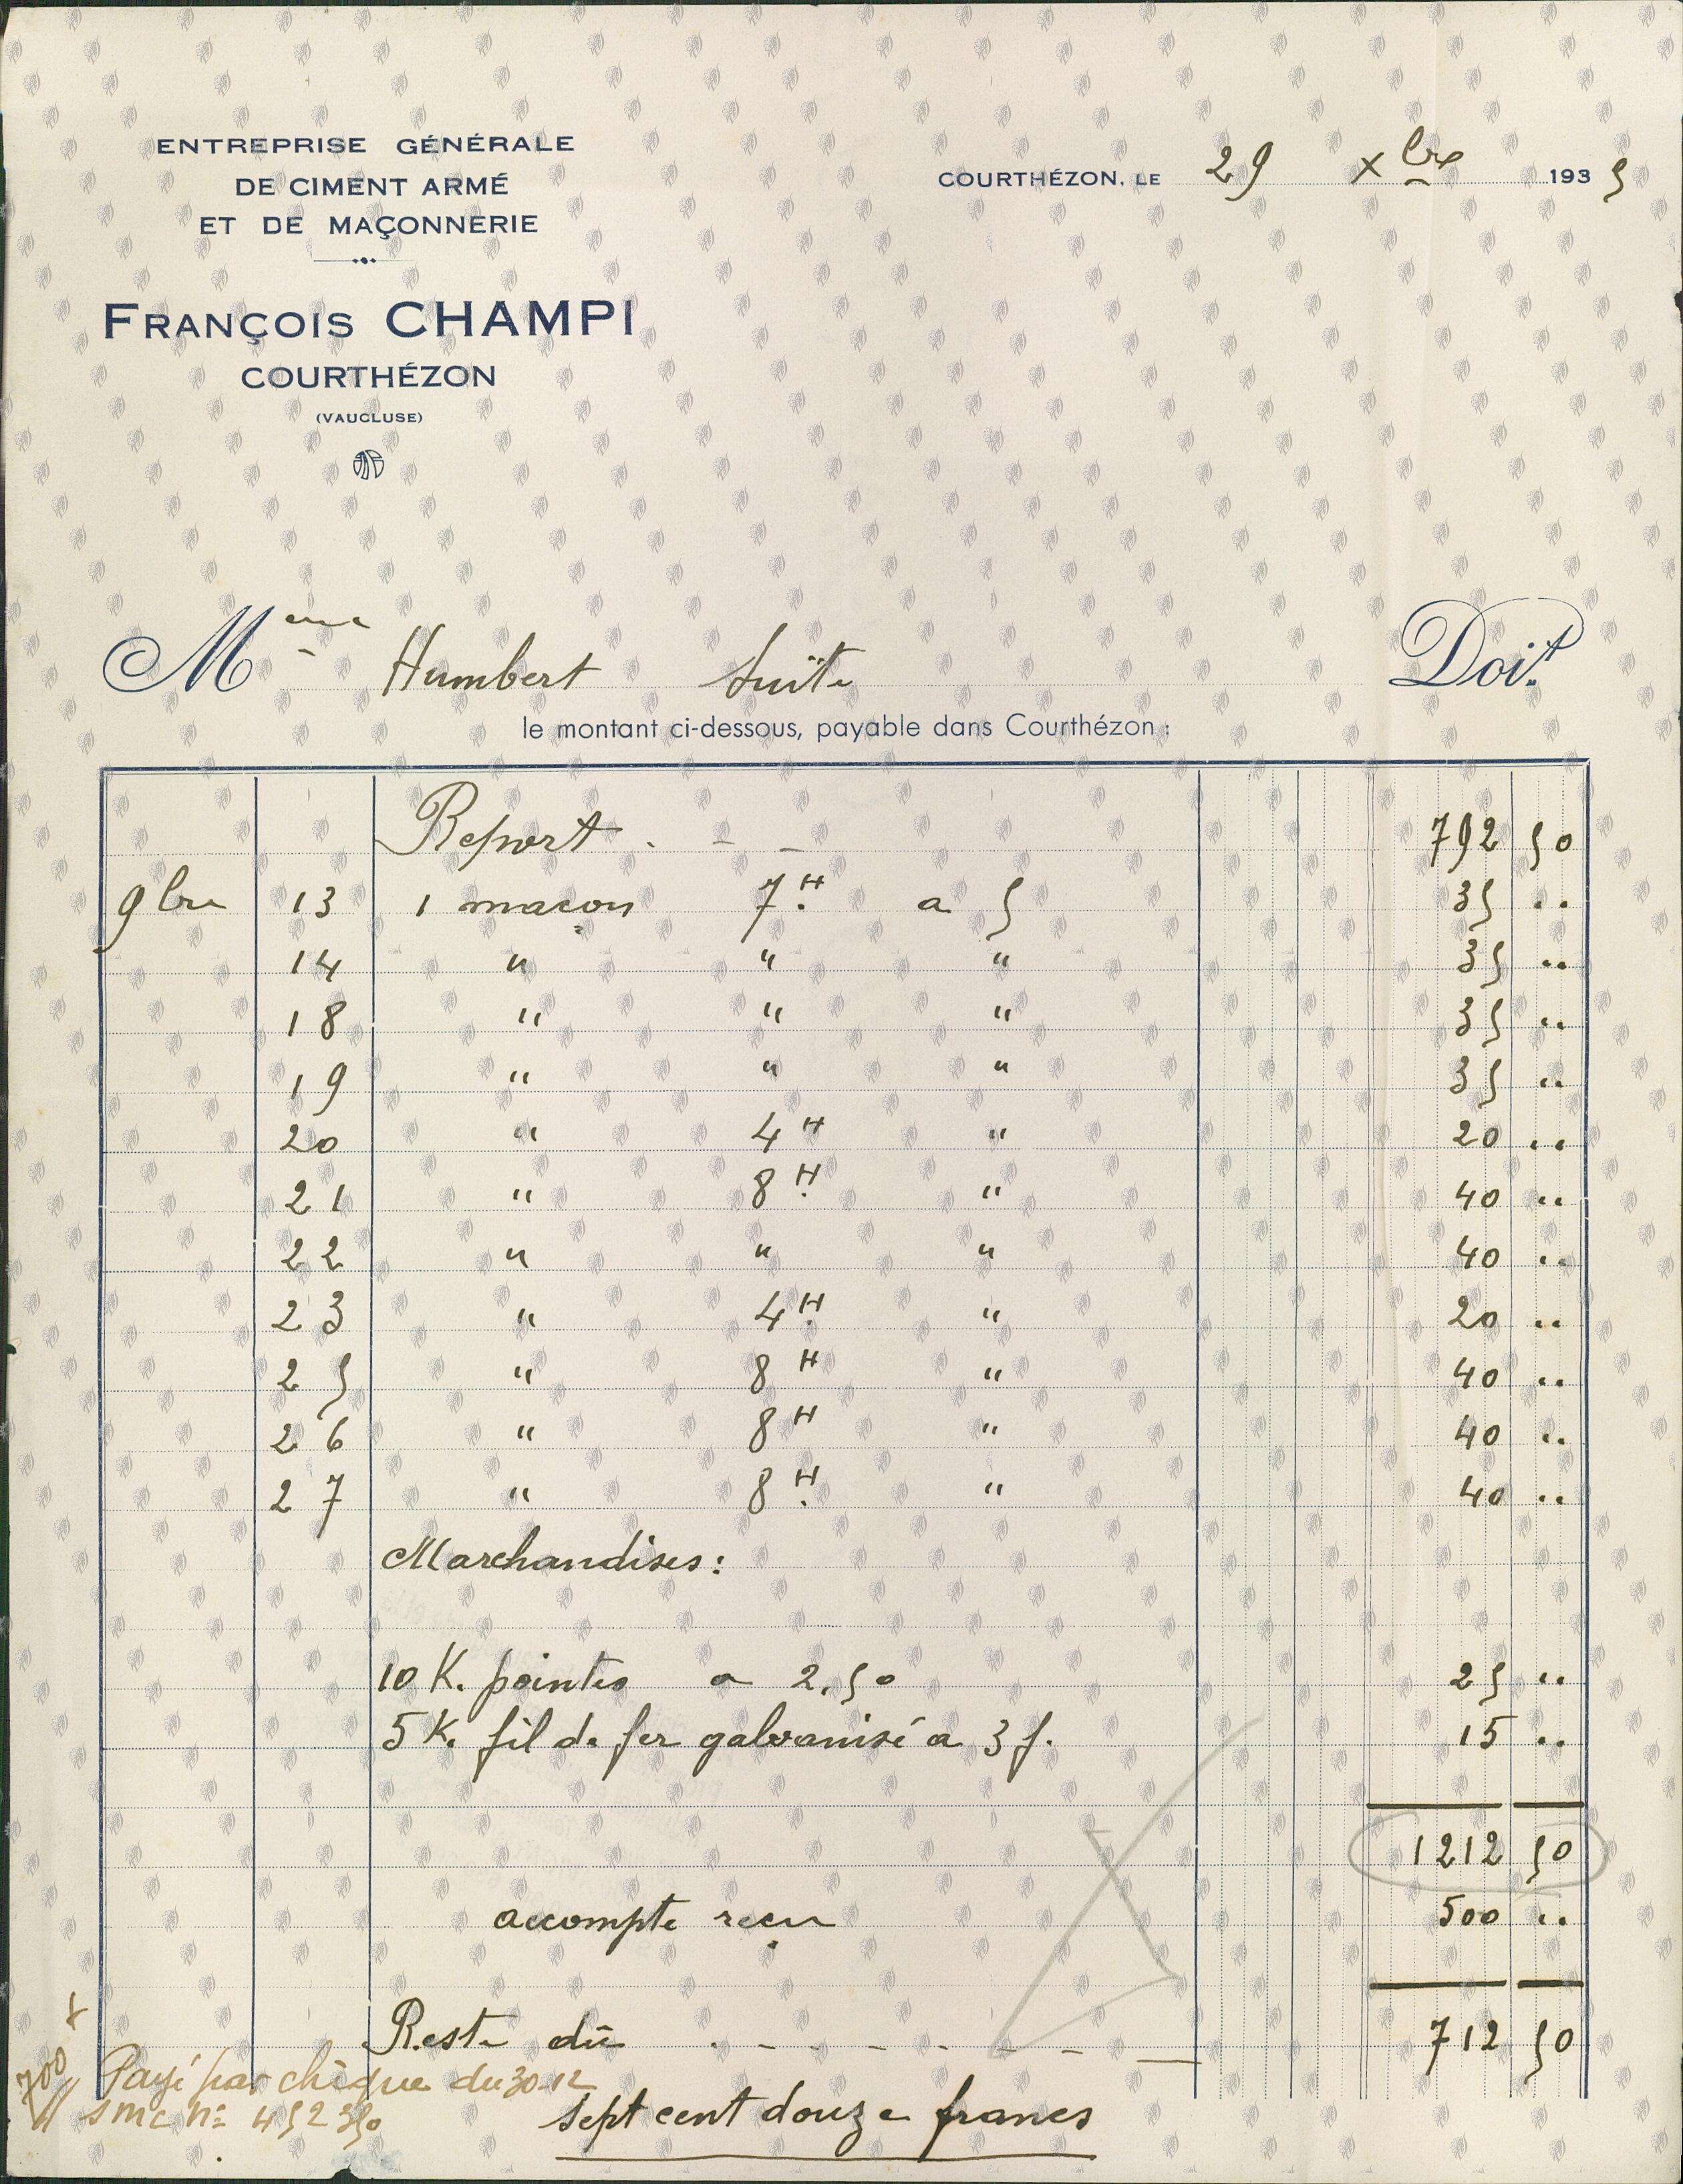 ENTREPRISE GÉNÉRALE
DE CIMENT ARMÉ
ET DE MAÇONNERIE
FRANÇOIS CHAMPI
COURTHÉZON
(VAUCLUSE)
COURTHÉZON, LE 29 Xbre 1935
Mme Humbert Suite Doit
le montant ci-dessous, payable dans Courthézon :
Report . - - 792 50
9bre 13 1 maçon 7H. a 5 35 ..
14 " " " 35 ..
18 " " " 35 ..
19 " " " 35 ..
20 " 4H " 20 ..
21 " 8H. " 40 ..
22 " " " 40 ..
23 " 4H. " 20 ..
25 " 8H " 40 ..
26 " 8H " 40 ..
27 " 8H. " 40 ..
Marchandises:
10 K. pointes a 2,50 25 ..
5 K. fil de fer galvanisé a 3 f. 15 ..
1212 50
accompte reçu 500 ..
Reste dû . - - - - - - 712 50
700
Payé par chèque du 30-12
SMC No 452350
sept cent douze francs